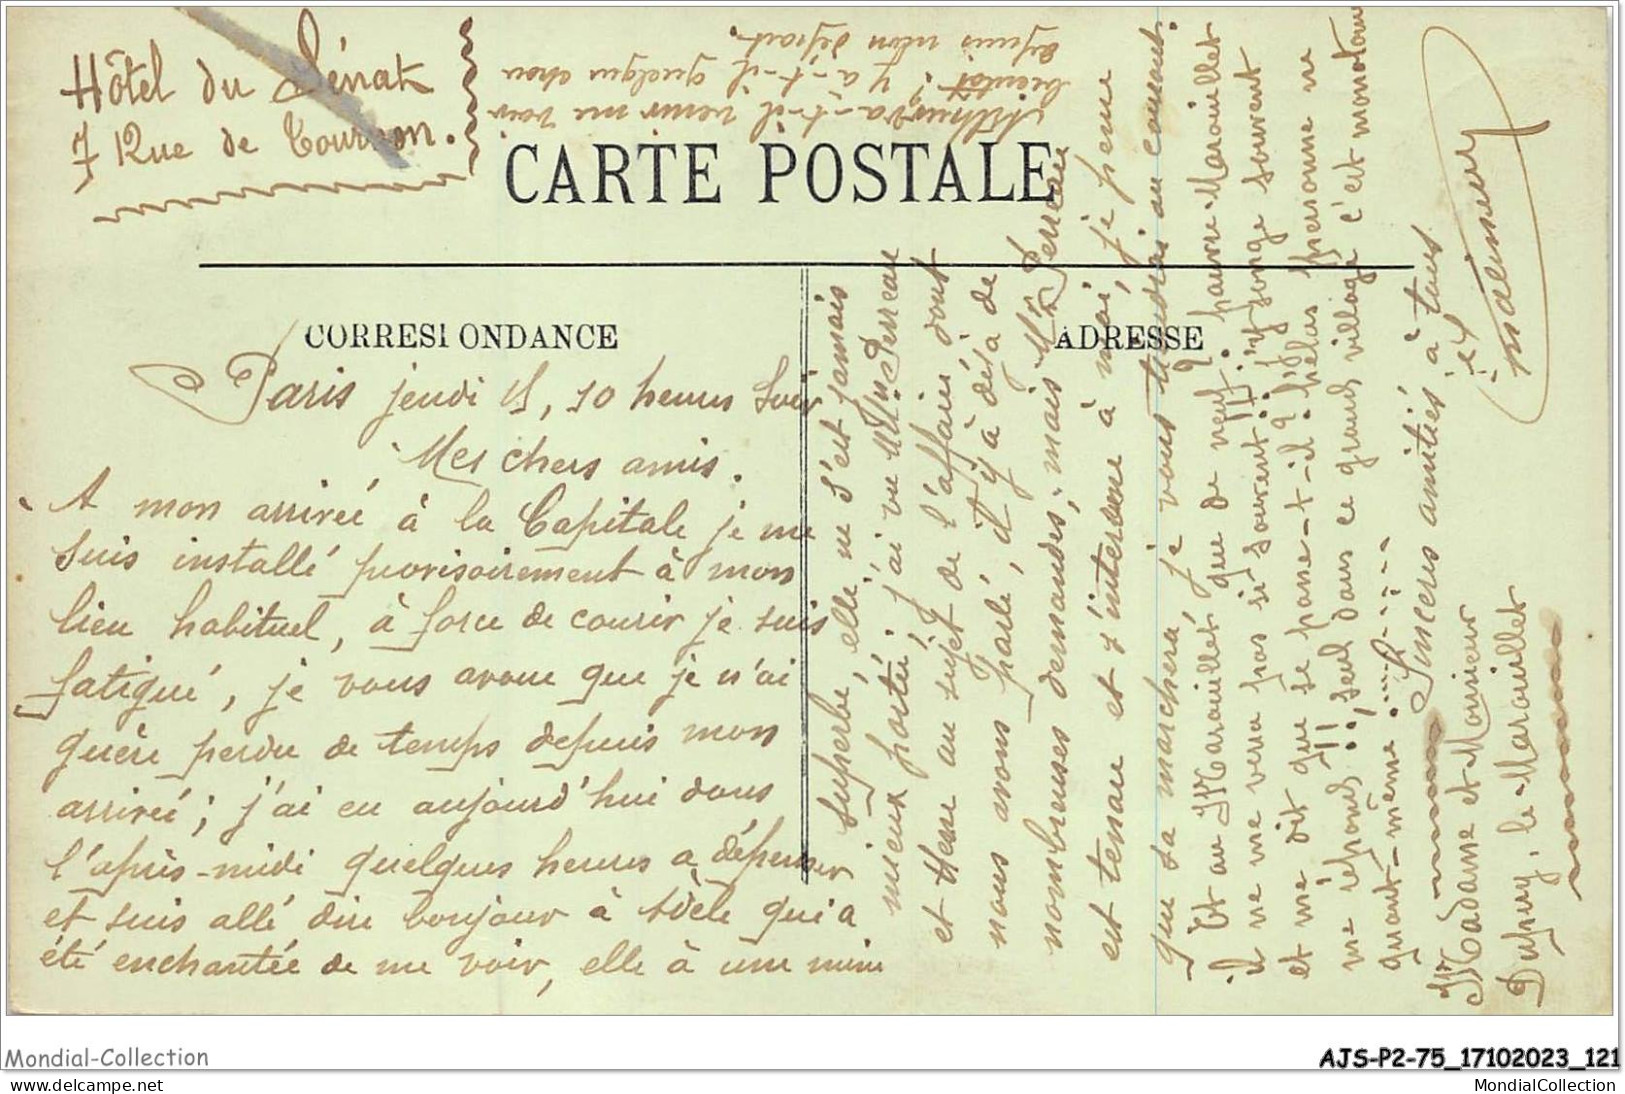 Hôtel du Sénat
7 Rue de Tournon.
Arthur va-t-il venir me voir
bientôt ? Y a-t-il quelque chose
depuis mon départ.
CARTE POSTALE
CORRESPONDANCE
ADRESSE
Paris jeudi 15, 10 heures soir
Mes chers amis.
A mon arrivée à la Capitale je me
suis installé provisoirement à mon
lieu habituel, à force de courir je suis
fatigué, je vous avoue que je n'ai
guère perdu de temps depuis mon
arrivée ; j'ai eu aujourd'hui dans
l'après-midi quelques heures a dépenser
et suis allé dire bonjour à Adèle qui a
été enchantée de me voir, elle à une mine
superbe, elle ne s'est jamais
mieux portée. j'ai vu Perreau
et au sujet de l'affaire dont
nous avons parlé, il y a déjà de
nombreuses demandes, mais Mr Perreau
est tenace et s'intéresse à moi, je pense
que sa marchera, je vous tiendrai au courant.
Et au Marouillet que de neuf ? pauvre Marouillet
il ne me verra pas si souvent !! j'y songe souvent
et me dit que se passe-t-il ? hélas personne ne
me répond !!! seul dans ce grand village c'est monotone
quand-même .....!.....
Sincères amitiés à tous
Madame et Monsieur
Dupuy. le Marouillet